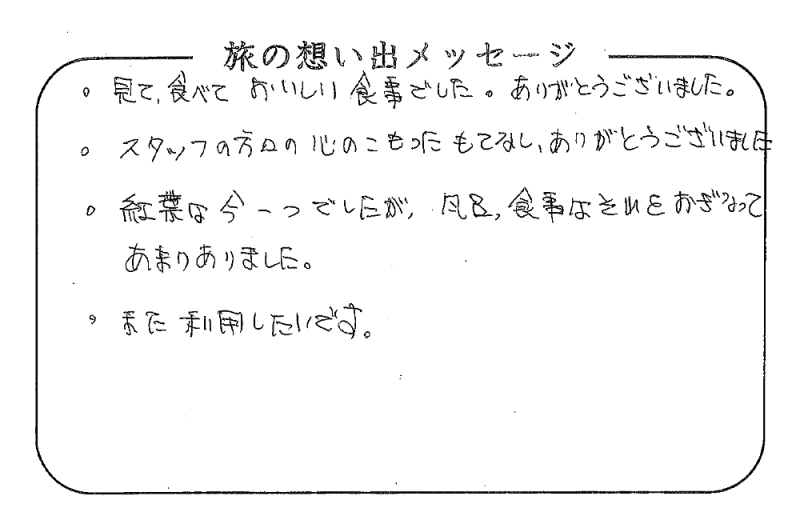 旅の想い出メッセージ
。見て、食べて おいしい食事でした。ありがとうございました。
。スタッフの方々の心のこもったもてなし、ありがとうございました
。紅葉は今一つでしたが、風呂、食事はそれをおぎなって
あまりありました。
。また利用したいです。